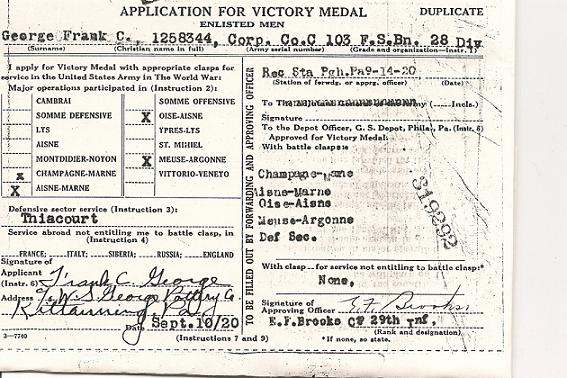 APPLICATION FOR VICTORY MEDAL DUPLICATE
ENLISTED MEN
George Frank C., 1258344, Corp. Co.C 103 F.S.Bn. 28 Div
(Surname) (Christian name in full) (Army serial number) (Grade and organization—Instr. 1)
I apply for Victory Medal with appropriate clasps for
service in the United States Army in The World War:
Major operations participated in (Instruction 2):
CAMBRAI SOMME OFFENSIVE
SOMME DEFENSIVE X OISE-AISNE
LYS YPRES-LYS
AISNE ST. MIHIEL
MONTDIDIER-NOYON X MEUSE-ARGONNE
x CHAMPAGNE-MARNE VITTORIO-VENETO
X AISNE-MARNE
Defensive sector service (Instruction 3):
Thiacourt
Service abroad not entitling me to battle clasp, in
(Instruction 4)
FRANCE; ITALY; SIBERIA; RUSSIA; ENGLAND
Signature of
Applicant
(Instr. 6) Frank C. George
Address W.S. George Pottery Co.
Kittanning, Pa.
Date Sept.10/20
3—7740 (Instructions 7 and 9)
TO BE FILLED OUT BY FORWARDING AND APPROVING OFFICER
Rec Sta Pgh.Pa 9-14-20
(Station of forwdg. or apprg. officer) (Date)
To The Army ( Incls.)
Signature
To the Depot Officer, G. S. Depot, Phila., Pa. (Instr. 8)
Approved for Victory Medal:
With battle clasps:*
Champagne-Marne
Aisne-Marne
Oise-Aisne
Meuse-Argonne
Def Sec.
319292
With clasp for service not entitling to battle clasp:*
None.
Signature of
Approving Officer E.F. Brooks
E.F.Brooks CP 29th Inf.
(Rank and designation)
*If none, so state.